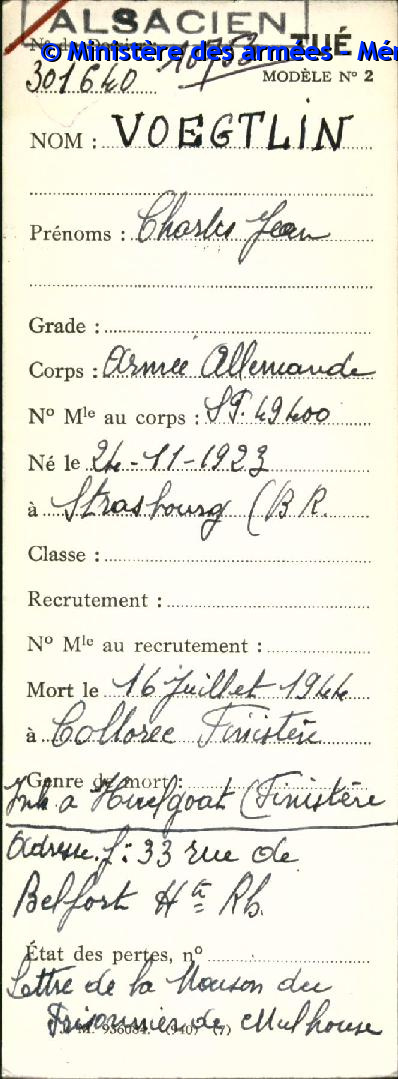 ALSACIEN
TUÉ
© Ministère des armées - Mé
10752
301640
MODÈLE N° 2
NOM : VOEGTLIN
Prénoms : Charles Jean
Grade :
Corps : Armée Allemande
N° Mle au corps : SP. 49400
Né le 24-11-1923
à Strasbourg (B R.
Classe :
Recrutement :
N° Mle au recrutement :
Mort le 16 Juillet 1944
à Collorec Finistère
Genre de mort :
Inh. a Huelgoat (Finistère
Adresse f: 33 rue de
Belfort Hte Rh.
État des pertes, n°
Lettre de la Maison du
Prisonnier de Mulhouse